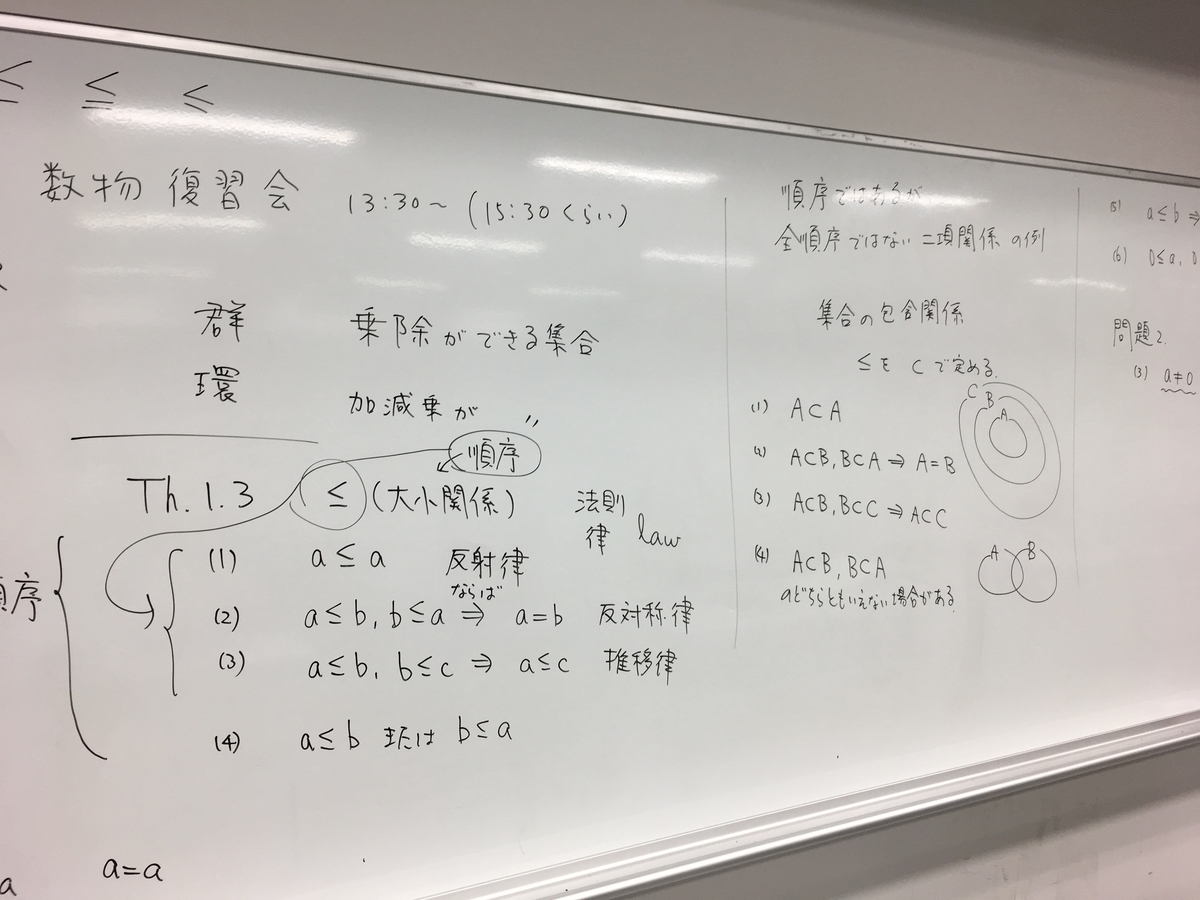 ≦ ≦ ≤
数物復習会 13:30～(15:30くらい)
群 乗除ができる集合
環 加減乗が 〃
順序
Th.1.3 ≤ (大小関係) 法則
律 law
順序
(1) a≤a 反射律
ならば
(2) a≤b, b≤a ⇒ a=b 反対称律
(3) a≤b, b≤c ⇒ a≤c 推移律
(4) a≤b または b≤a
a a=a
順序ではあるが
全順序ではない二項関係の例
集合の包含関係
≤を⊂で定める.
(1) A⊂A
(2) A⊂B, B⊂A ⇒ A=B
(3) A⊂B, B⊂C ⇒ A⊂C
(4) A⊂B, B⊂A
のどちらともいえない場合がある.
C B A
A B
(5) a≤b ⇒
(6) 0≤a, 0
問題2.
(3) a≠0